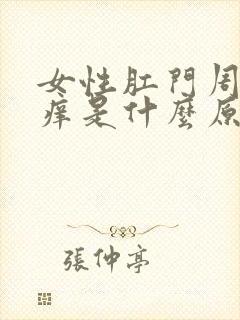 女性肛門周
痒是什麼原
張仲亭